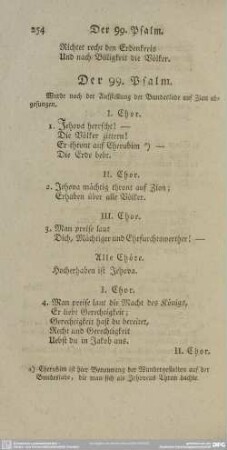 254 Der 99. Psalm.
Richtet recht den Erdenkreis
Und nach Billigkeit die Völker.
Der 99. Psalm.
Wurde nach der Aufstellung der Bundeslade auf Zion ab-
gesungen.
I. Chor.
1. Jehova herrscht! —
Die Völker zittern!
Er thront auf Cherubim a) —
Die Erde bebt.
II. Chor.
2. Jehova mächtig thront auf Zion;
Erhaben über alle Völker.
III. Chor.
3. Man preise laut
Dich, Mächtiger und Ehrfurchtswerther! —
Alle Chöre.
Hocherhaben ist Jehova.
I. Chor.
4. Man preise laut die Macht des Königs,
Er liebt Gerechtigkeit;
Gerechtigkeit hast du bereitet,
Recht und Gerechtigkeit
Uebst du in Jakob aus.
II. Chor.
a) Cherubim ist hier Benennung der Wundergestalten auf der
Bundeslade, die man sich als Jehovens Thron dachte.